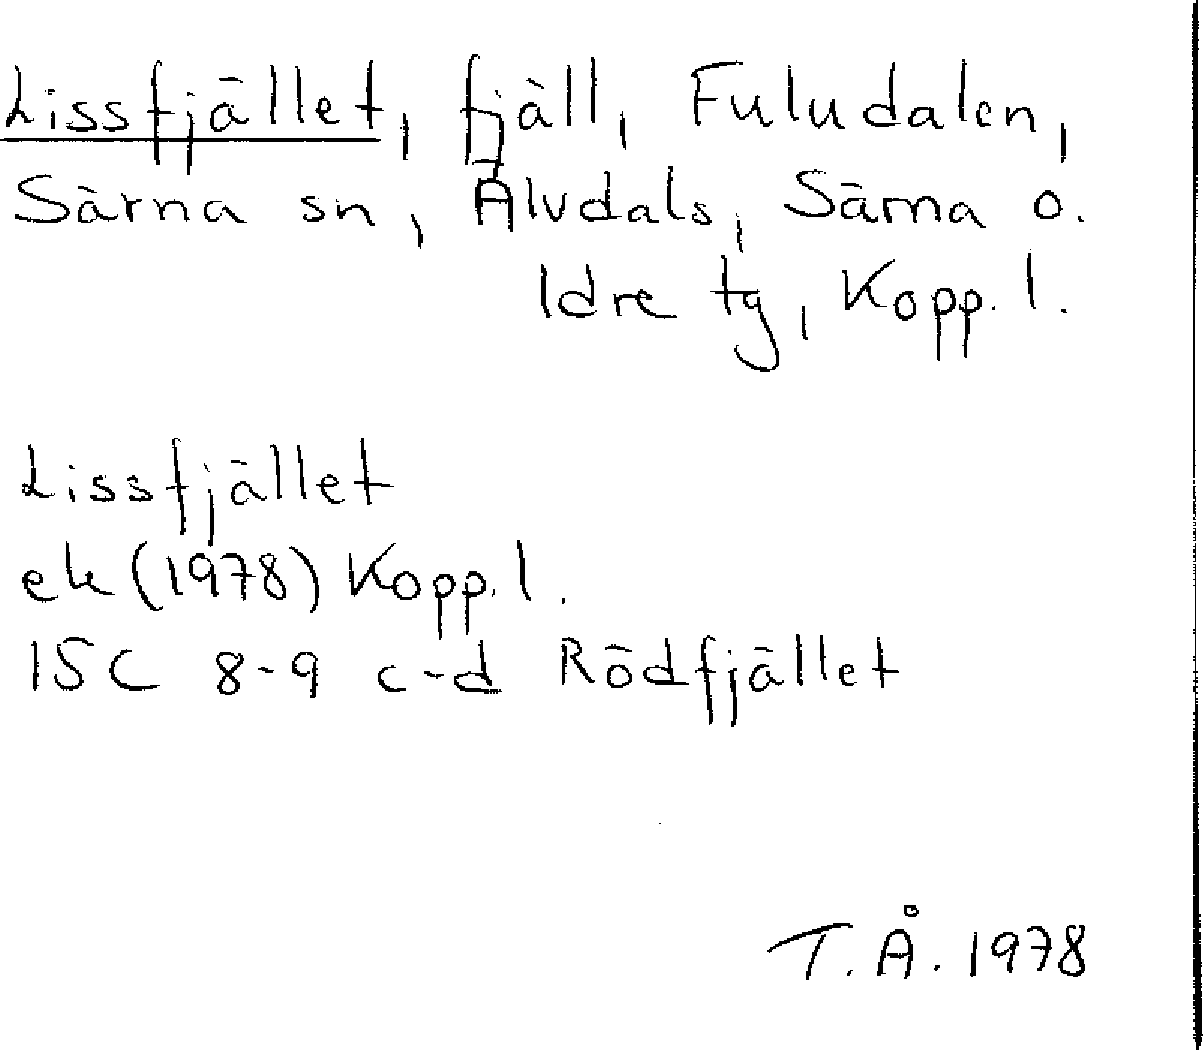 Lissfjället, fjäll, Fuludalen,
Särna sn, Älvdals, Särna o.
Idre tg, Kopp. l.
Lissfjället
ek (1978) Kopp. l.
15C 8-9 c-d Rödfjället
T. Å. 1978